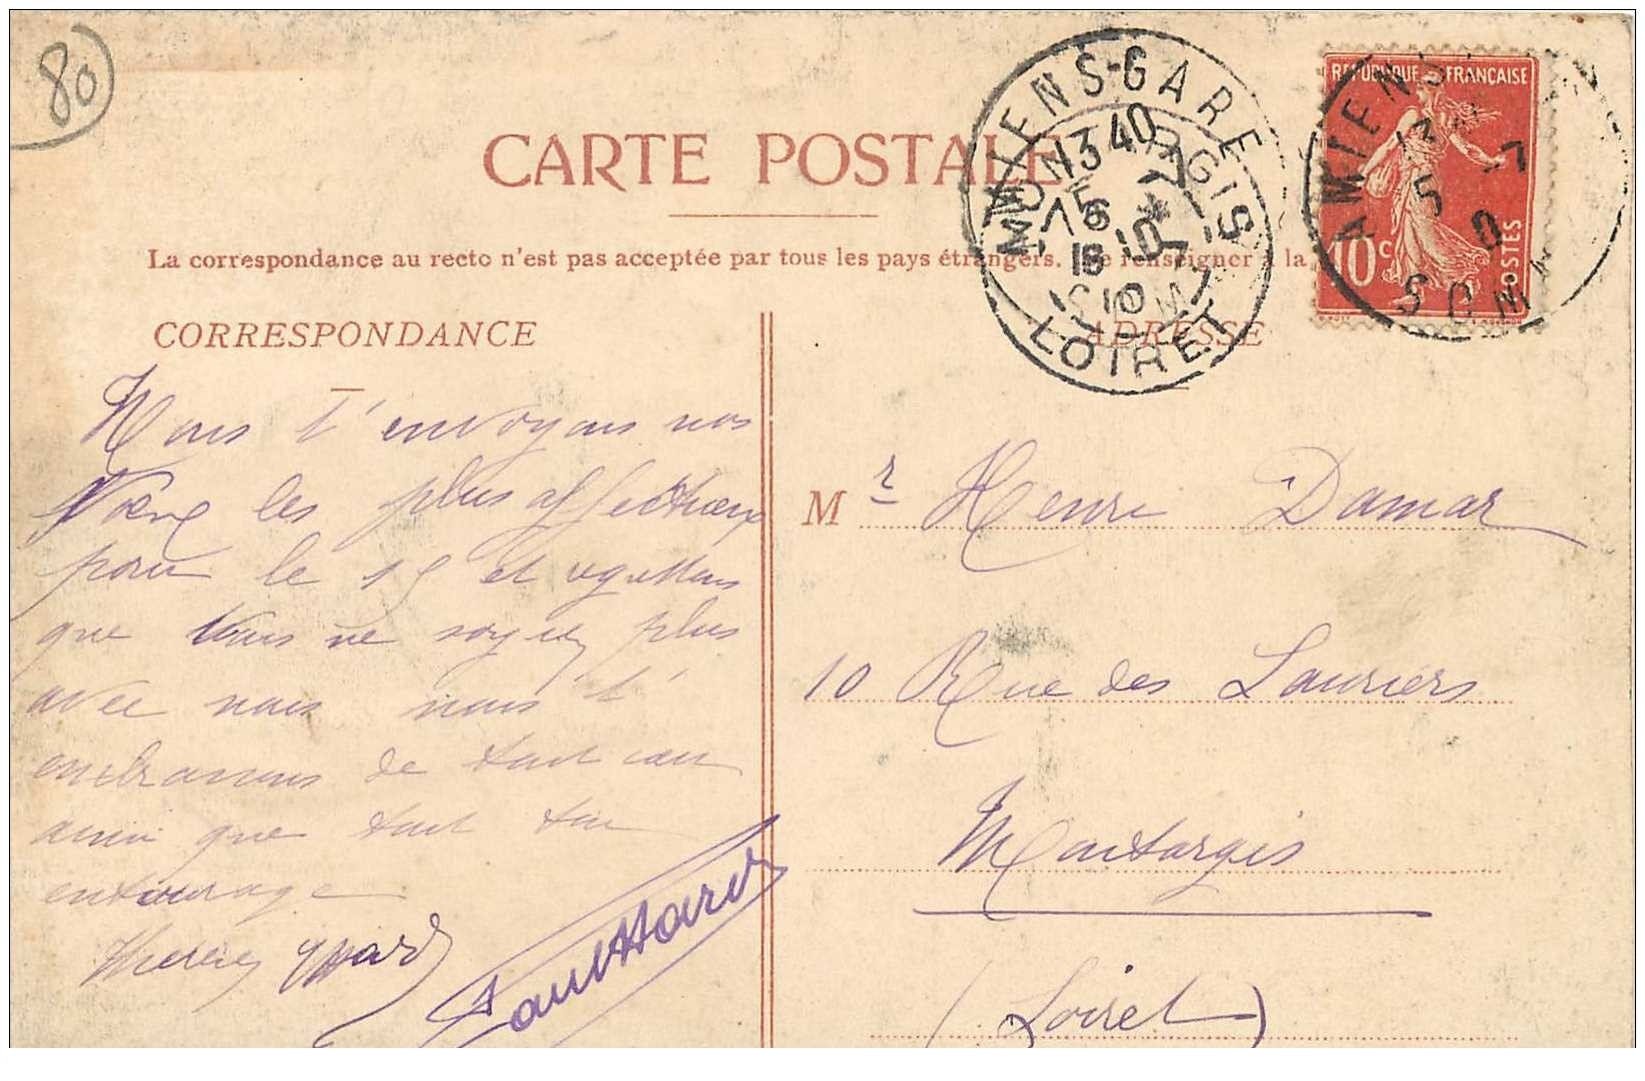 80
CARTE POSTALE
La correspondance au recto n'est pas acceptée par tous les pays étrangers. Se renseigner à la
CORRESPONDANCE
ADRESSE
AMIENS-GARE
13 40
MONTARGIS
LOIRET
REPUBLIQUE FRANÇAISE
10c
POSTES
AMIENS
Nous t'envoyons nos
vœux les plus affectueux
pour le 15 et regrettons
que vous ne soyiez plus
avec nous nous t'
embrassons de tout cœur
ainsi que tout ton
entourage
Mr Henri Damar
10 Rue des Lauriers
Montargis
(Loiret)